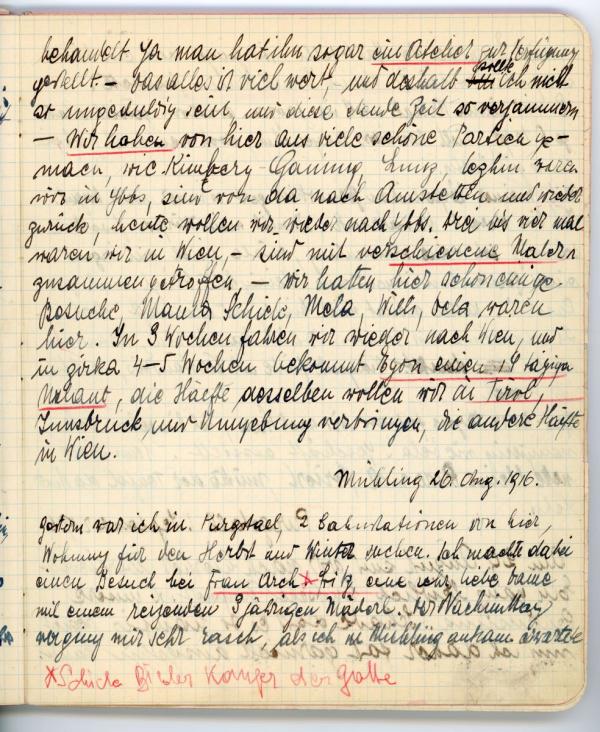 behandelt. Ja man hat ihm sogar ein Atelier zur Verfügung
gestellt. – das alles ist viel wert, und deshalb sollte ich nicht
so ungeduldig sein, und diese Zeit so verjammern
– Wir haben von hier aus viele schöne Partien ge-
macht, wie Kienberg-Gaming, Lunz, letzhin waren
wir in Ybbs, sind von da nach Amstetten und wieder
zurück, heute wollen wir wieder nach Ybbs. drei bis vier mal
waren wir in Wien, – sind mit verschiedene Malern
zusammengetroffen, – wir hatten hier schon einige
Besuche, Mama Schiele, Mela, Willi, waren
hier. In 3 Wochen fahren wir wieder nach Wien, und
in zirka 4–5 Wochen bekommt Egon einen 14 tägigen
Urlaub, die Hälfte desselben wollen wir in Tirol,
Innsbruck, und Umgebung verbringen, die andere Hälfte
in Wien.
Mühling 26. Aug. 1916.
gestern war ich in Purgstall, 2 Bahnstationen von hier,
Wohnung für den Herbst und Winter suchen. Ich machte dabei
einen Besuch bei Frau Arch × Fritz, eine sehr liebe Dame
mit einem reizenden 3jährigen Mäderl. Der Nachmittag
verging mir sehr rasch, als ich in Mühling ankam erwartete
× Schiele der Gatte